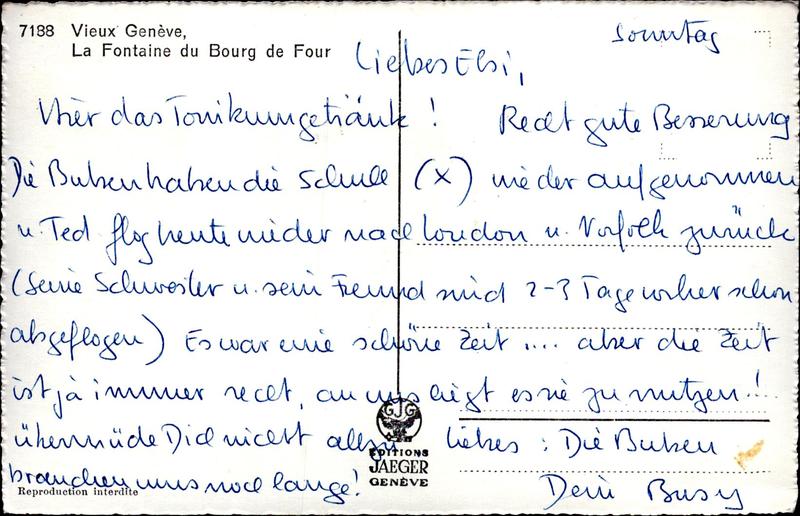 7188 Vieux Genève,
La Fontaine du Bourg de Four
Sonntag
Liebes Elsi,
Hier das Tonikumgetränk! Recht gute Besserung
Die Buben haben die Schule (x) wieder aufgenommen
u. Ted flog heute wieder nach London u. Norfolk zurück
(Seine Schwester u. sein Freund sind 2-3 Tage vorher schon
abgeflogen) Es war eine schöne Zeit .... aber die Zeit
ist ja immer recht, an uns liegt es sie zu nutzen!
übermüde Dich nicht allzu liebes: Die Buben
brauchen uns noch lange! Dein Busy
GJG
EDITIONS
JAEGER
GENÈVE
Reproduction interdite